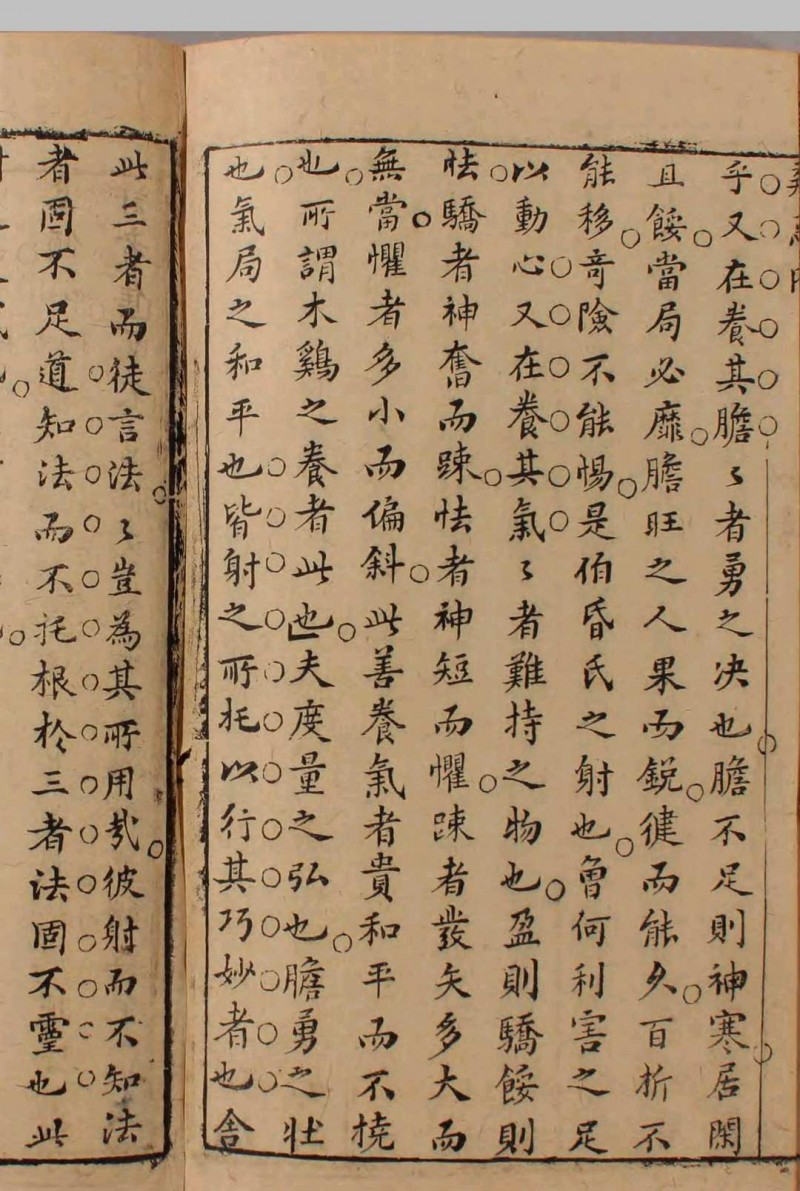 乎又在養其膽〻者勇之决也膽不足則神寒居閑
且餒當局必靡膽旺之人果而銳健而能久百折不
能移竒險不能惕是伯昏氏之射也曾何利害之足
以動心又在養其氣〻者難持之物也盈則驕餒則
怯驕者神奮而踈怯者神短而懼踈者發矢多大而
無當懼者多小而偏斜此善養氣者貴和平而不撓
也所謂木鷄之養者此也夫度量之弘也膽勇之壯
也氣局之和平也皆射之所托以行其巧妙者也舍
此三者而徒言法〻豈為其所用㢤彼射而不知法
者固不足道知法而不托根於三者法固不靈也此